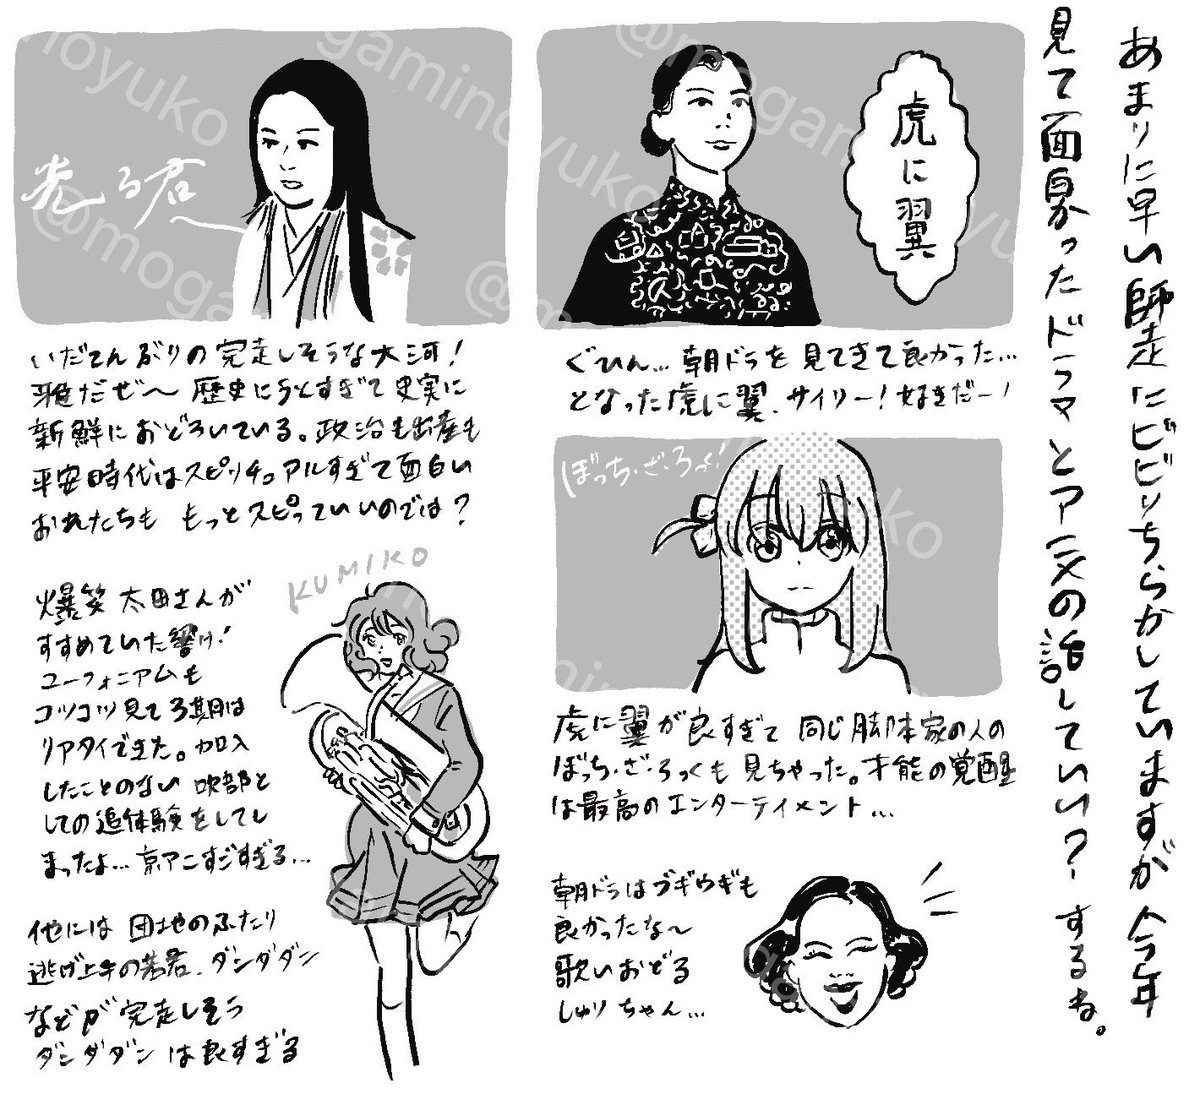 あまりに早い師走にビビりちらかしていますが今年
見て面白かったドラマとアニメの話していい?するね。
虎に翼
ぐひん...朝ドラを見てきて良かった...
となった虎に翼、サイリー!好きだー!
ぼっち・ざ・ろっく!
虎に翼が良すぎて同じ脚本家の人の
ぼっち・ざ・ろっくも見ちゃった。才能の覚醒
は最高のエンターテイメント...
朝ドラはブギウギも
良かったな〜
歌いおどる
しゅりちゃん...
光る君へ
いだてんぶりの完走しそうな大河!
雅だぜ〜歴史にうとすぎて史実に
新鮮におどろいている。政治も出産も
平安時代はスピリチュアルすぎて面白い
おれたちももっとスピっていいのでは?
KUMIKO
爆笑太田さんが
すすめていた響け!
ユーフォニアムも
コツコツ見て3期は
リアタイできた。加入
したことのない吹部と
しての追体験をしてし
まったよ...京アニすごすぎる...
他には団地のふたり
逃げ上手の若君、ダンダダン
などが完走しそう
ダンダダンは良すぎる
@mogaminoyuko